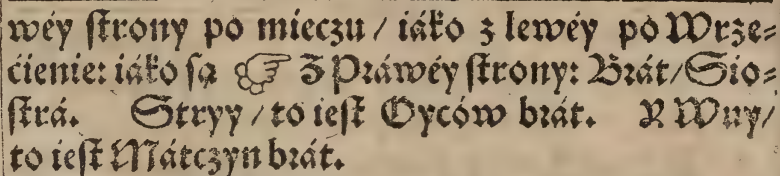 wéy ſtrony po mieczu / iáko z lewéy po Wrze⸗
ćienie: iáko ſą ☞ Z Práwéy ſtrony: Brát / Sio⸗
ſtrá. Stryy / to ieſt Oyców brát. Wuy /
to ieſt Mátczyn brát.